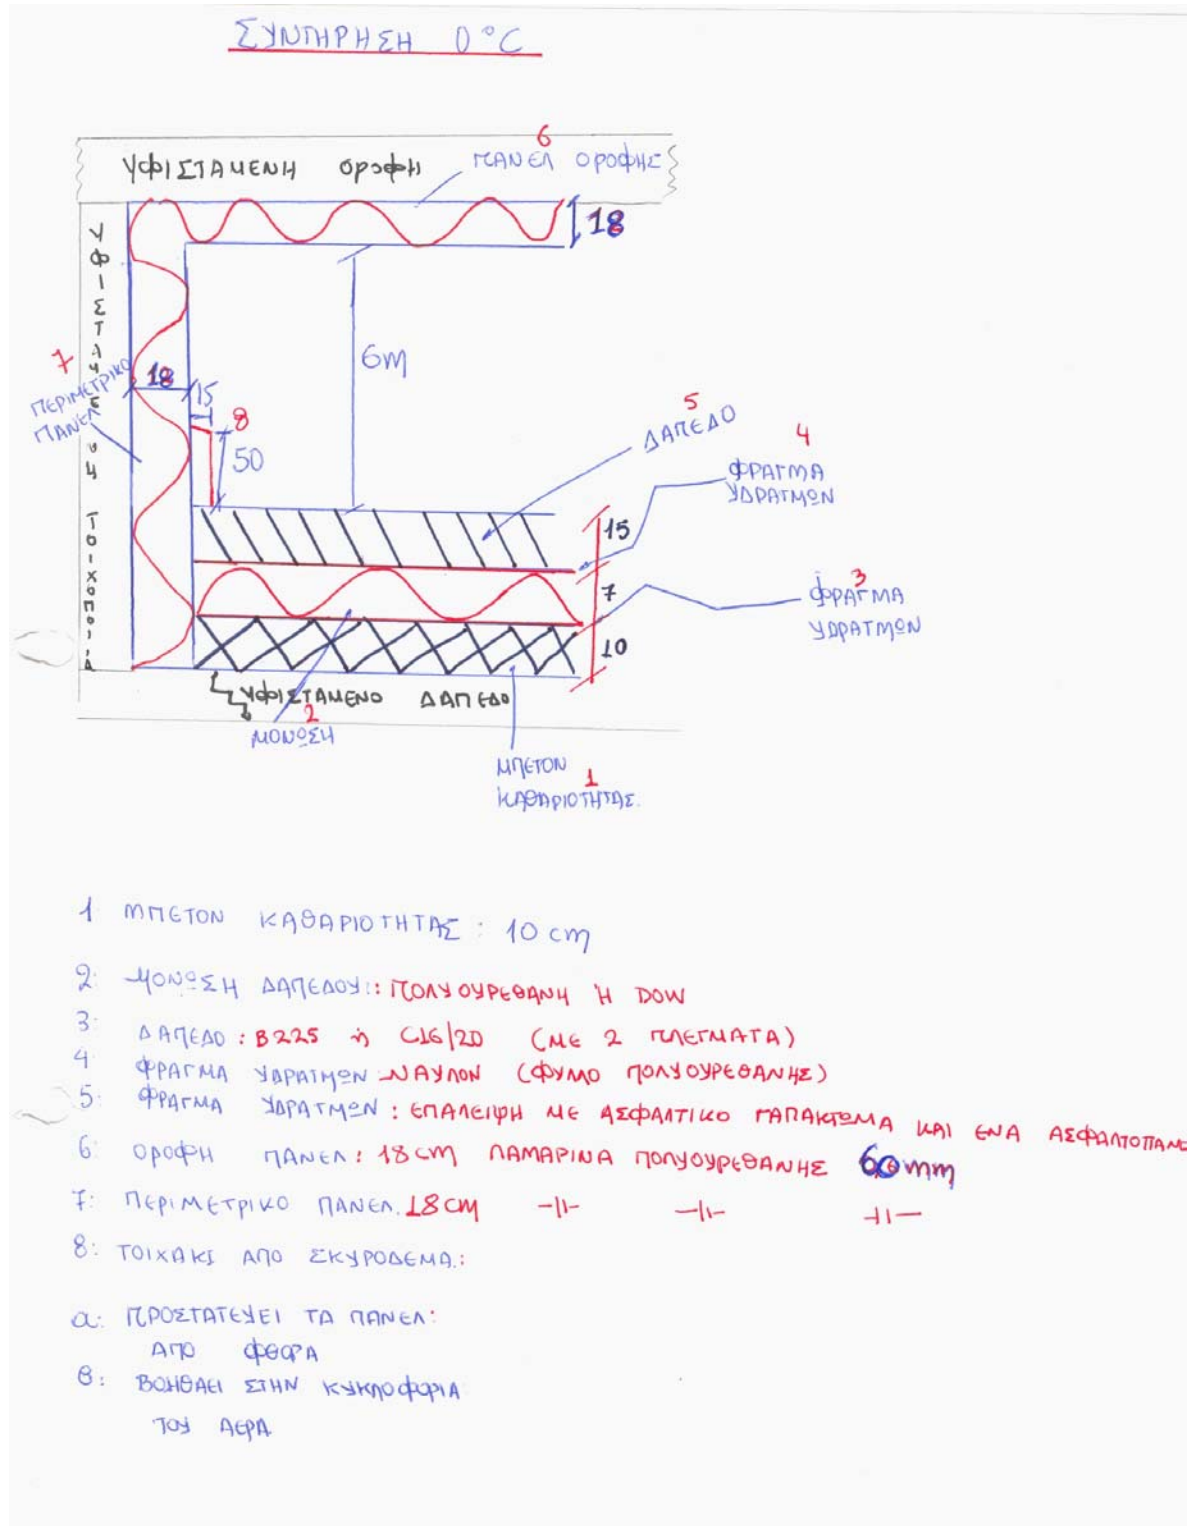 ΣΥΝΤΗΡΗΣΗ 0°C
6
ΥΦΙΣΤΑΜΕΝΗ ΟΡΟΦΗ
ΠΑΝΕΛ ΟΡΟΦΗΣ
18
ΥΦΙΣΤΑΜΕΝΗ ΤΟΙΧΟΠΟΙΙΑ
6m
7
ΠΕΡΙΜΕΤΡΙΚΟ
ΠΑΝΕΛ
18
15
8
50
5
ΔΑΠΕΔΟ
4
ΦΡΑΓΜΑ
ΥΔΡΑΤΜΩΝ
15
7
10
3
ΦΡΑΓΜΑ
ΥΔΡΑΤΜΩΝ
ΥΦΙΣΤΑΜΕΝΟ ΔΑΠΕΔΟ
2
ΜΟΝΩΣΗ
ΜΠΕΤΟΝ 1
ΚΑΘΑΡΙΟΤΗΤΑΣ.
1 ΜΠΕΤΟΝ ΚΑΘΑΡΙΟΤΗΤΑΣ : 10 cm
2: ΜΟΝΩΣΗ ΔΑΠΕΔΟΥ:: ΠΟΛΥΟΥΡΕΘΑΝΗ Ή DOW
3: ΔΑΠΕΔΟ : B225 ή C16/20 (ΜΕ 2 ΠΛΕΓΜΑΤΑ)
4 ΦΡΑΓΜΑ ΥΔΡΑΤΜΩΝ ΝΑΥΛΟΝ (ΦΥΛΛΟ ΠΟΛΥΟΥΡΕΘΑΝΗΣ)
5: ΦΡΑΓΜΑ ΥΔΡΑΤΜΩΝ : ΕΠΑΛΕΙΨΗ ΜΕ ΑΣΦΑΛΤΙΚΟ ΓΑΛΑΚΤΩΜΑ ΚΑΙ ΕΝΑ ΑΣΦΑΛΤΟΠΑΝΟ
6: ΟΡΟΦΗ ΠΑΝΕΛ: 18 cm ΛΑΜΑΡΙΝΑ ΠΟΛΥΟΥΡΕΘΑΝΗΣ mm
7: ΠΕΡΙΜΕΤΡΙΚΟ ΠΑΝΕΛ. 18 cm -||- -||- -||-
8: ΤΟΙΧΑΚΙ ΑΠΟ ΣΚΥΡΟΔΕΜΑ.:
α: ΠΡΟΣΤΑΤΕΥΕΙ ΤΑ ΠΑΝΕΛ:
ΑΠΟ ΦΘΟΡΑ
β: ΒΟΗΘΑΕΙ ΣΤΗΝ ΚΥΚΛΟΦΟΡΙΑ
ΤΟΥ ΑΕΡΑ